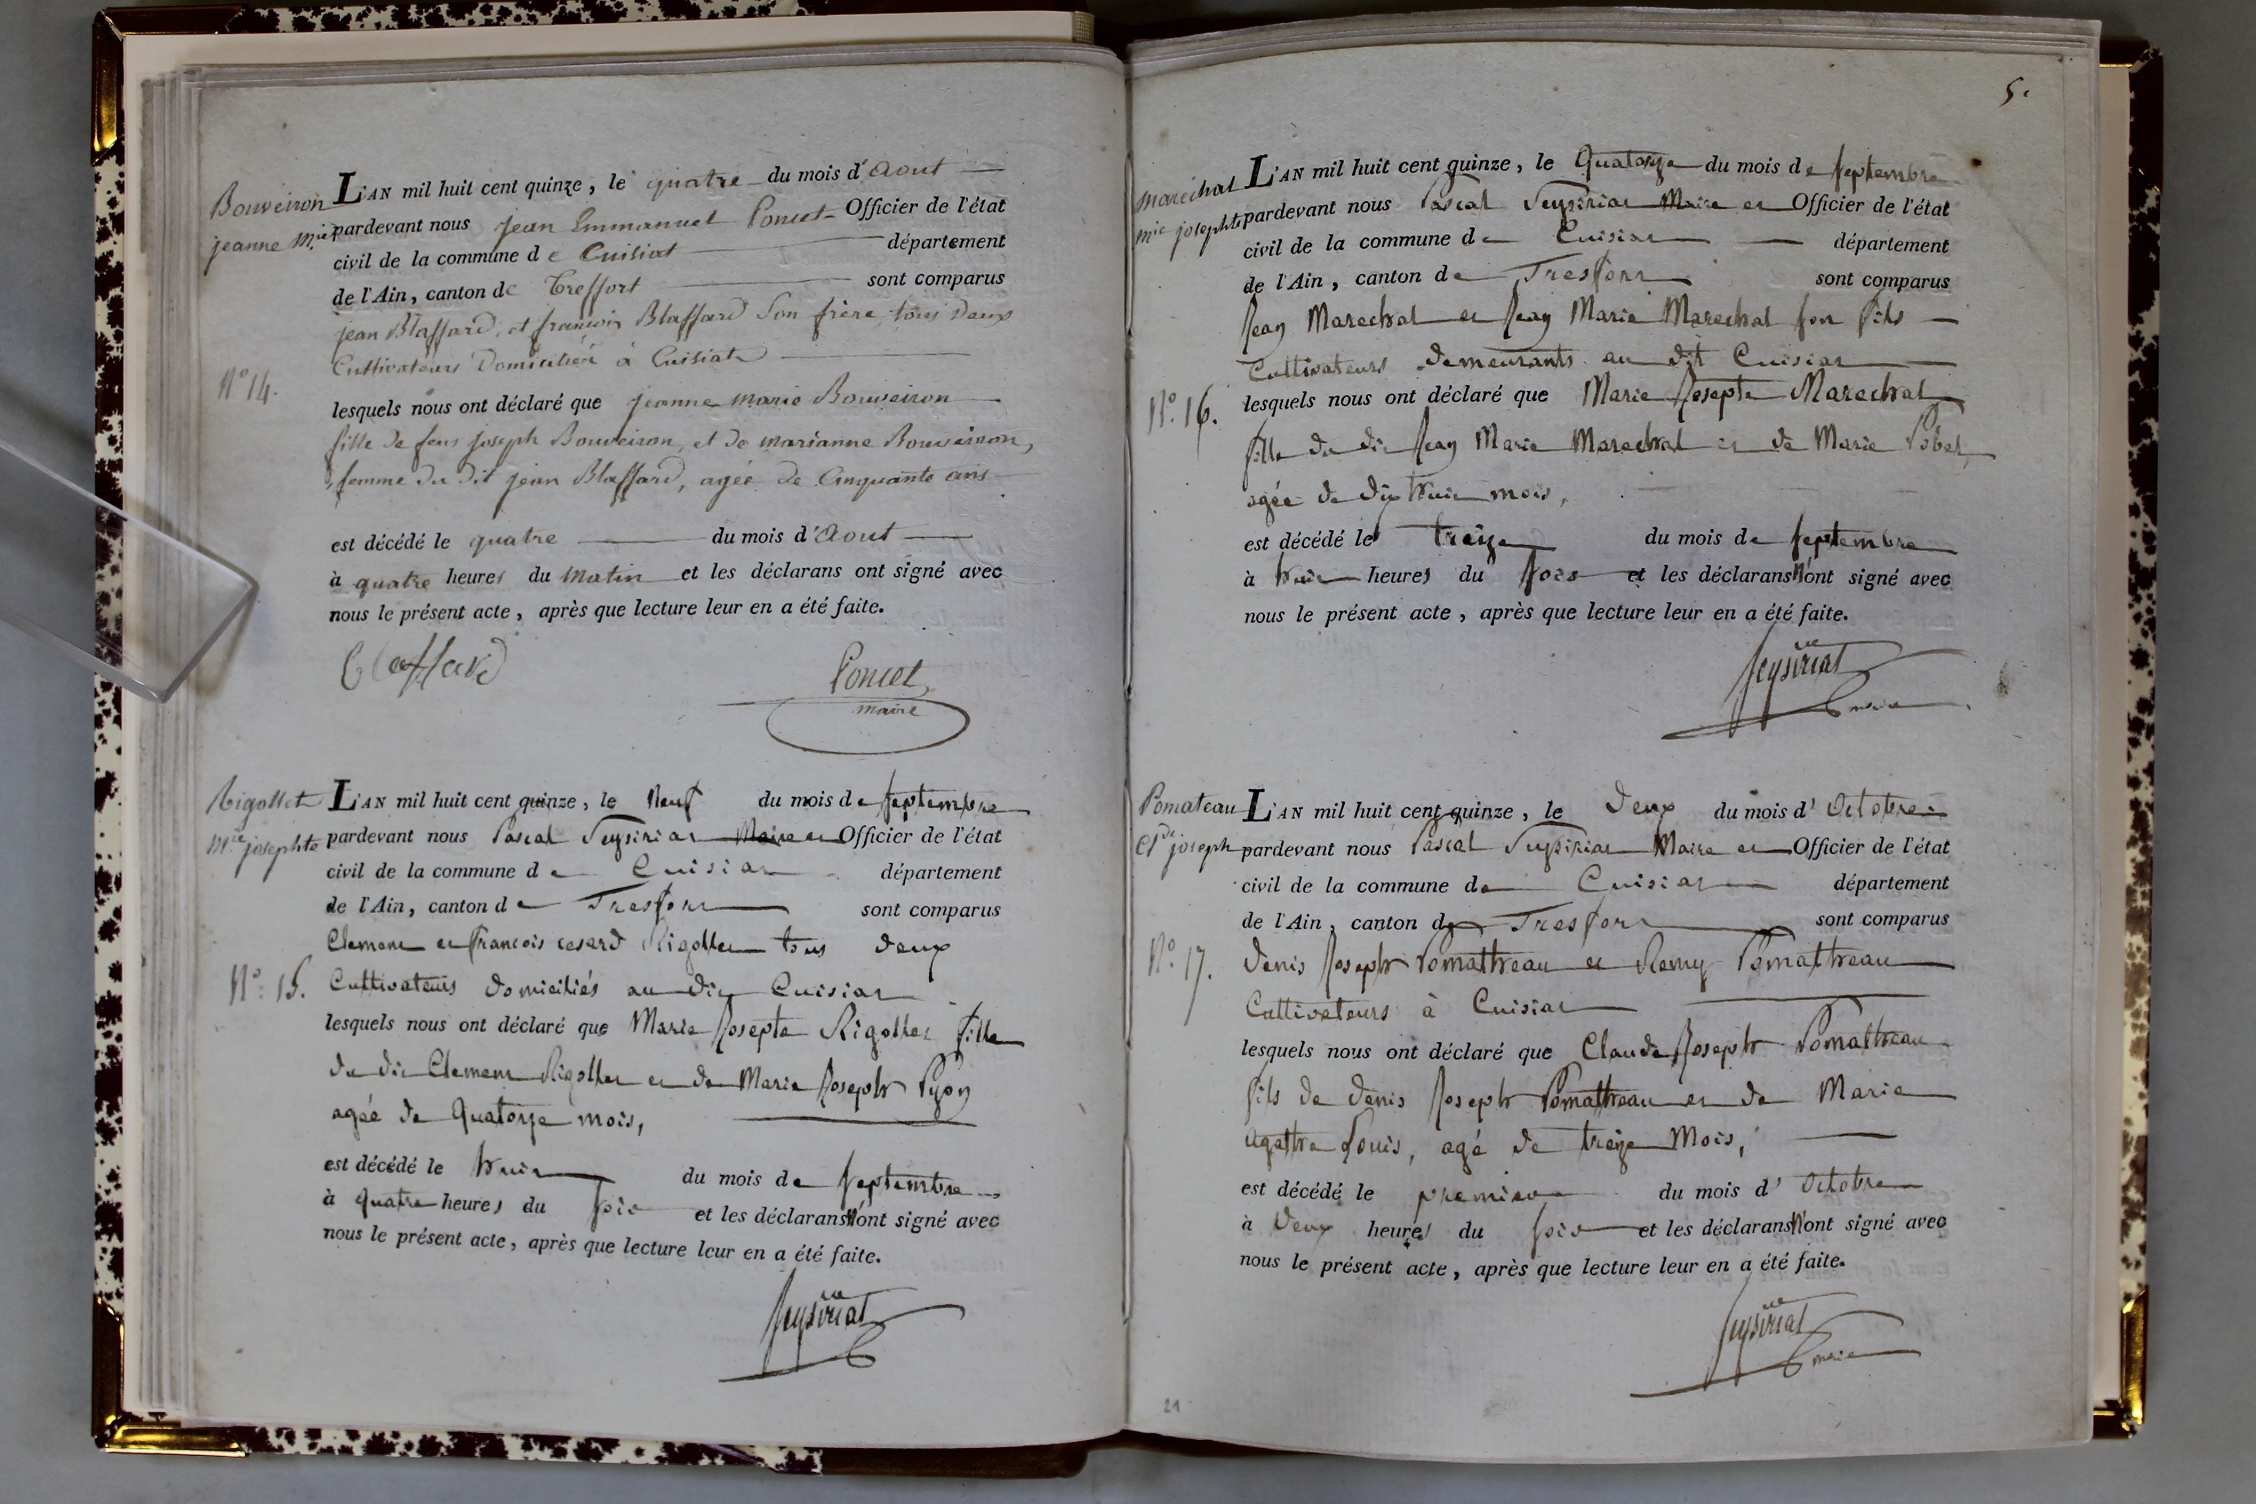 Bouveiron
jeanne M.ie
N° 14.
L'AN mil huit cent quinze, le quatre du mois d'Aout
pardevant nous jean Emmanuel Poncet Officier de l'état
civil de la commune de Cuisiat département
de l'Ain, canton de Treffort sont comparus
jean Blaffard, et francois Blaffard Son frère, tous Deux
Cultivateurs Domiciliés à Cuisiat
lesquels nous ont déclaré que jeanne marie Bouveiron
fille de feu joseph Bouveiron, et de marianne Bouveiron,
femme du dit jean Blaffard, agée de Cinquante ans
est décédé le quatre du mois d'Aout
à quatre heures du Matin et les déclarans ont signé avec
nous le présent acte, après que lecture leur en a été faite.
Blaffard
Poncet
maire
Rigollet
M.ie josephte
N°. 15.
L'AN mil huit cent quinze, le Neuf du mois de septembre
pardevant nous Pascal Seysiriat Maire et Officier de l'état
civil de la commune de Cuisiat département
de l'Ain, canton de Tresfort sont comparus
Clement et francois cesard Rigollet tous deux
Cultivateurs domiciliés au dit Cuisiat
lesquels nous ont déclaré que Marie Josepte Rigollet fille
du dit Clement Rigollet et de Marie Joseph Pyon
agée de Quatorze mois,
est décédé le huit du mois de septembre
à quatre heures du soir et les déclarans n'ont signé avec
nous le présent acte, après que lecture leur en a été faite.
Seysiriat
5.
marechal
Mie josephte
N°. 16.
L'AN mil huit cent quinze, le Quatorze du mois de septembre
pardevant nous Pascal Seysiriat Maire et Officier de l'état
civil de la commune de Cuisiat département
de l'Ain, canton de Tresfort sont comparus
Jean Marechal et Jean Marie Marechal son fils
Cultivateurs demeurants au dit Cuisiat
lesquels nous ont déclaré que Marie Josepte Marechal
fille du dit Jean Marie Marechal et de Marie Pobel,
agée de dix huit mois,
est décédé le treize du mois de septembre
à huit heures du soir et les déclarans n'ont signé avec
nous le présent acte, après que lecture leur en a été faite.
Seysiriat
maire
Pomateau
Cl.de joseph
N°. 17.
L'AN mil huit cent quinze, le deux du mois d'Octobre
pardevant nous Pascal Seysiriat Maire et Officier de l'état
civil de la commune de Cuisiat département
de l'Ain, canton de Tresfort sont comparus
denis Joseph Pomathreau et Remy Pomathreau
Cultivateurs à Cuisiat
lesquels nous ont déclaré que Claude Joseph Pomathreau
fils de denis Joseph Pomathreau et de Marie
agathe Louis, agé de treize Mois,
est décédé le premier du mois d'Octobre
à deux heures du soir et les déclarans n'ont signé avec
nous le présent acte, après que lecture leur en a été faite.
Seysiriat
maire
21